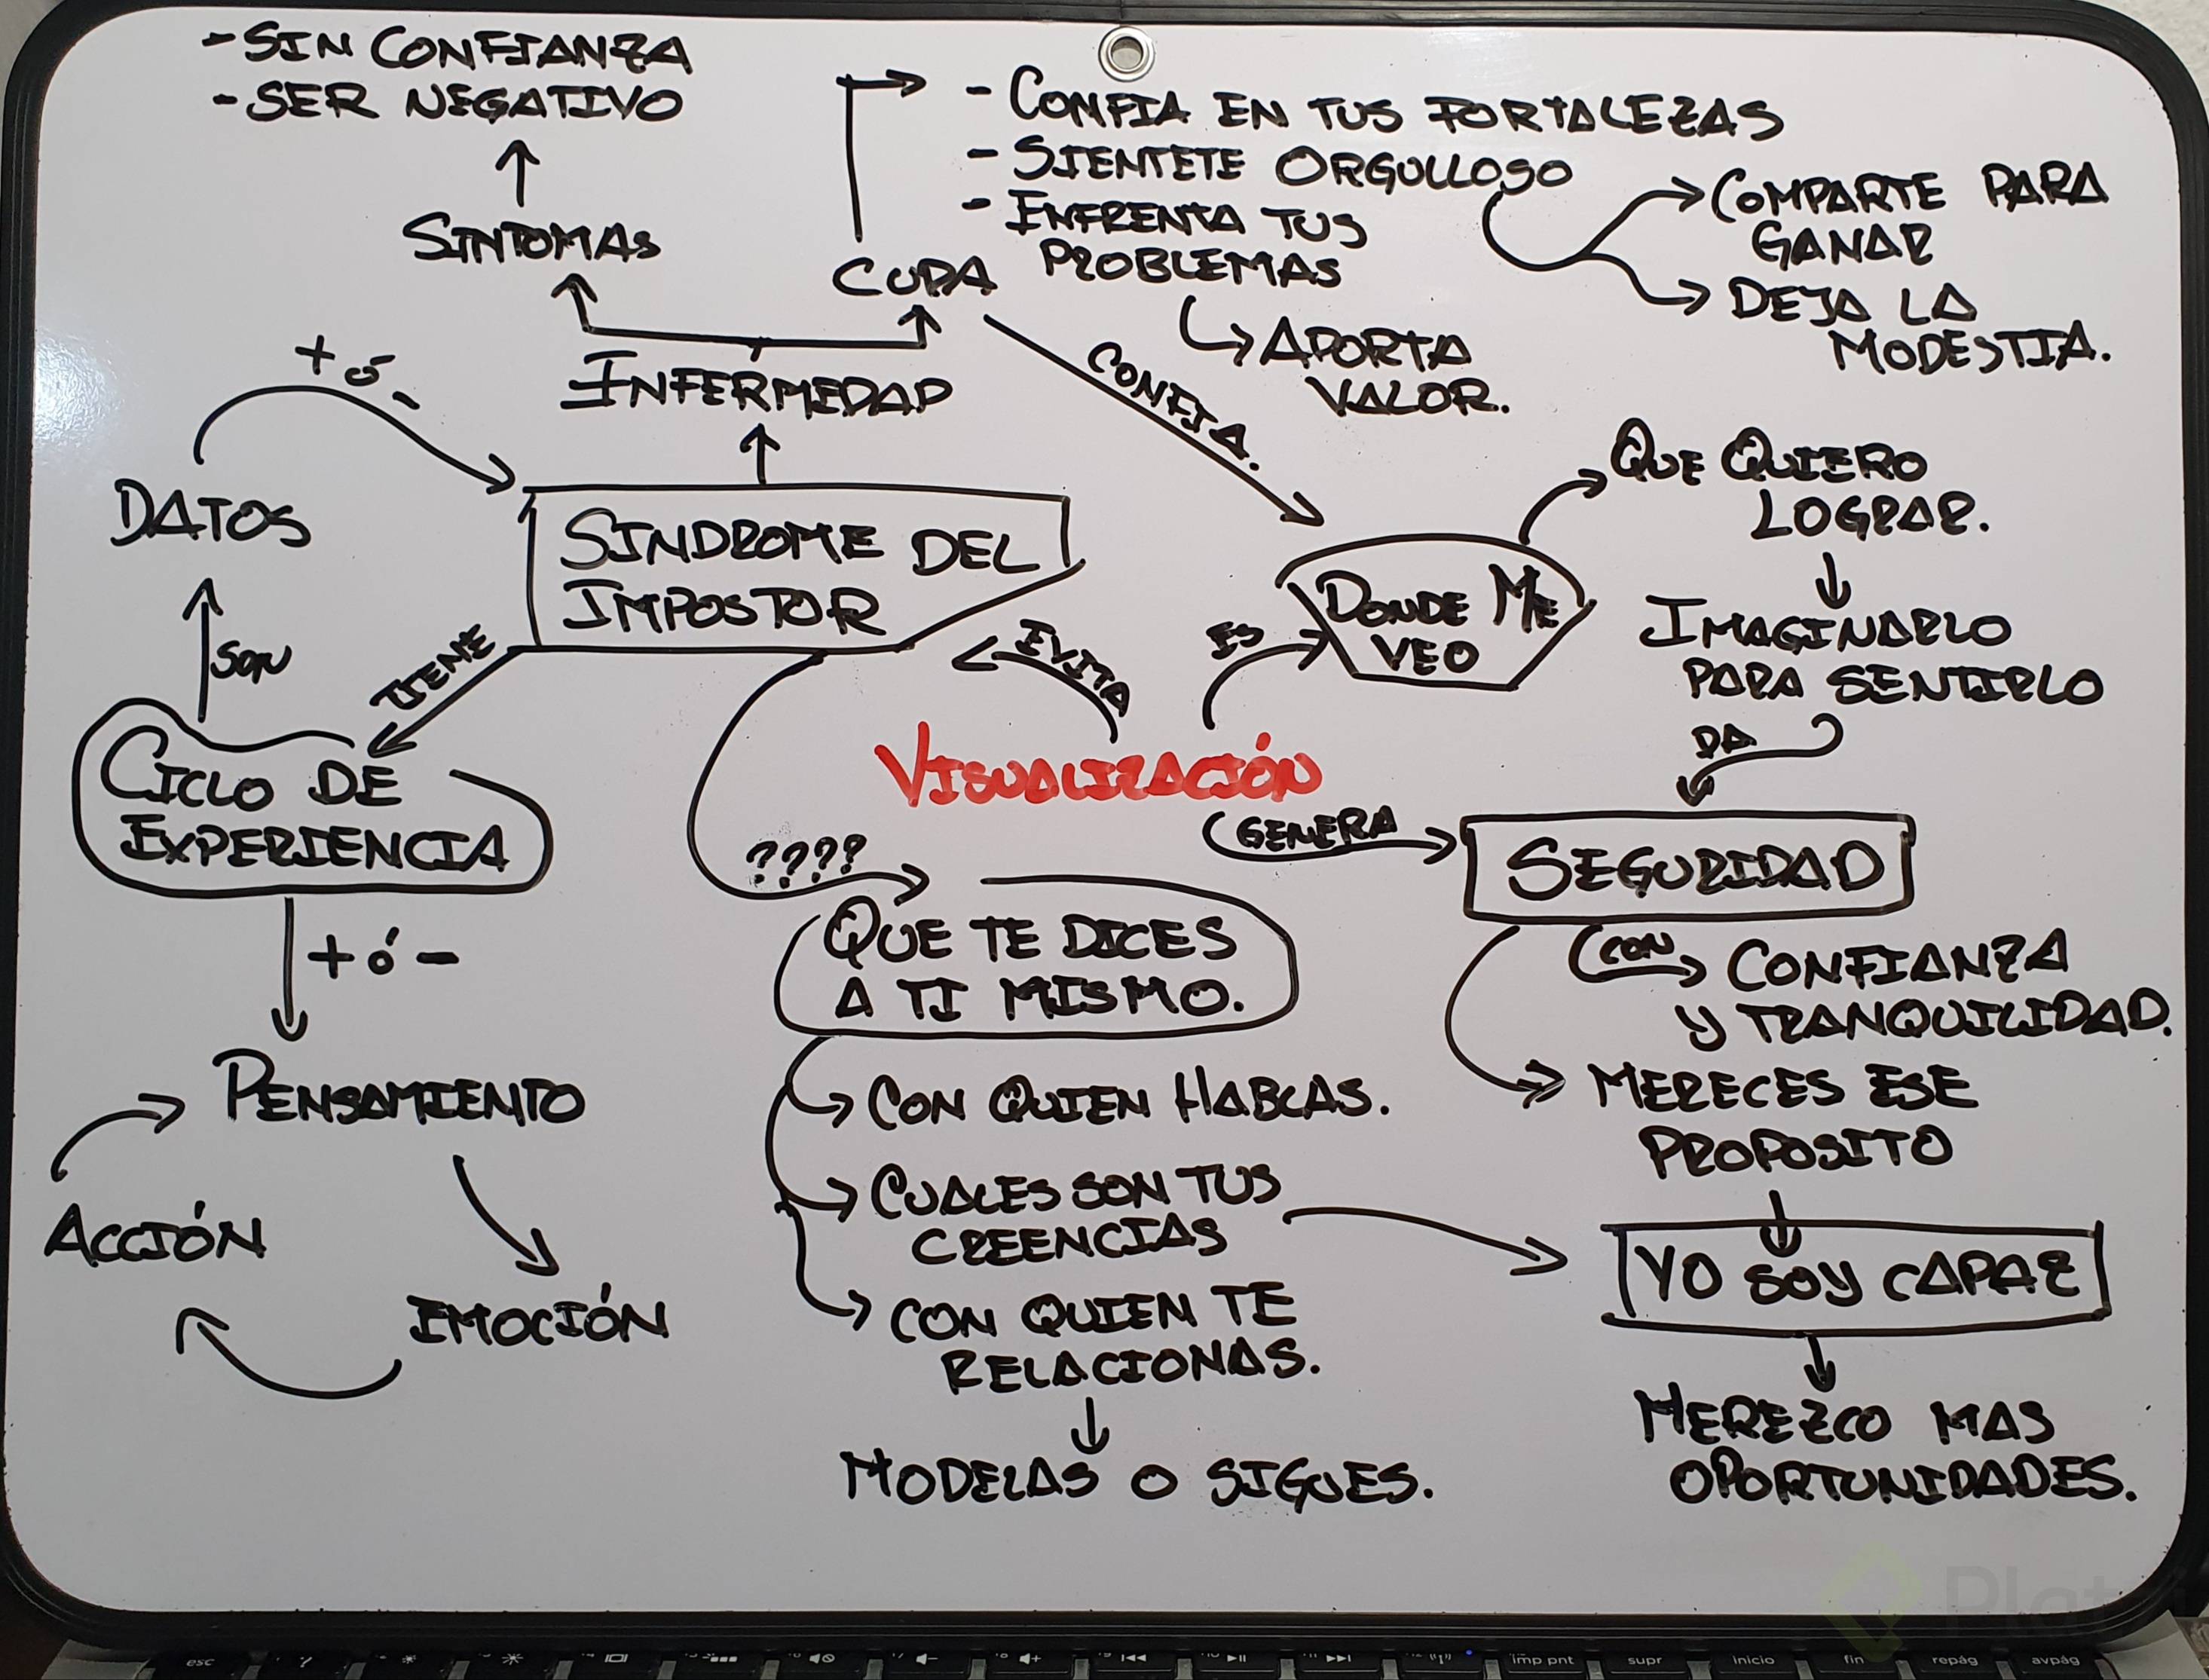 - SIN CONFIANZA
- SER NEGATIVO
SINTOMAS
CURA
- CONFIA EN TUS FORTALEZAS
- SIENTETE ORGULLOSO
- ENFRENTA TUS
PROBLEMAS
APORTA
VALOR.
COMPARTE PARA
GANAR
DEJA LA
MODESTIA.
+ ó -
ENFERMEDAD
CONFIA.
DATOS
SINDROME DEL
IMPOSTOR
SON
TIENE
EVITA
ES
DONDE ME
VEO
QUE QUIERO
LOGRAR.
IMAGINARLO
PARA SENTIRLO
DA
CICLO DE
EXPERIENCIA
VISUALIZACIÓN
GENERA
SEGURIDAD
????
QUE TE DICES
A TI MISMO.
CON
CONFIANZA
Y TRANQUILIDAD.
MERECES ESE
PROPOSITO
+ ó -
PENSAMIENTO
EMOCIÓN
ACCIÓN
CON QUIEN HABLAS.
CUALES SON TUS
CREENCIAS
CON QUIEN TE
RELACIONAS.
MODELAS O SIGUES.
YO SOY CAPAZ
MEREZCO MAS
OPORTUNIDADES.
esc
imp pnt
supr
inicio
fin
repág
avpág